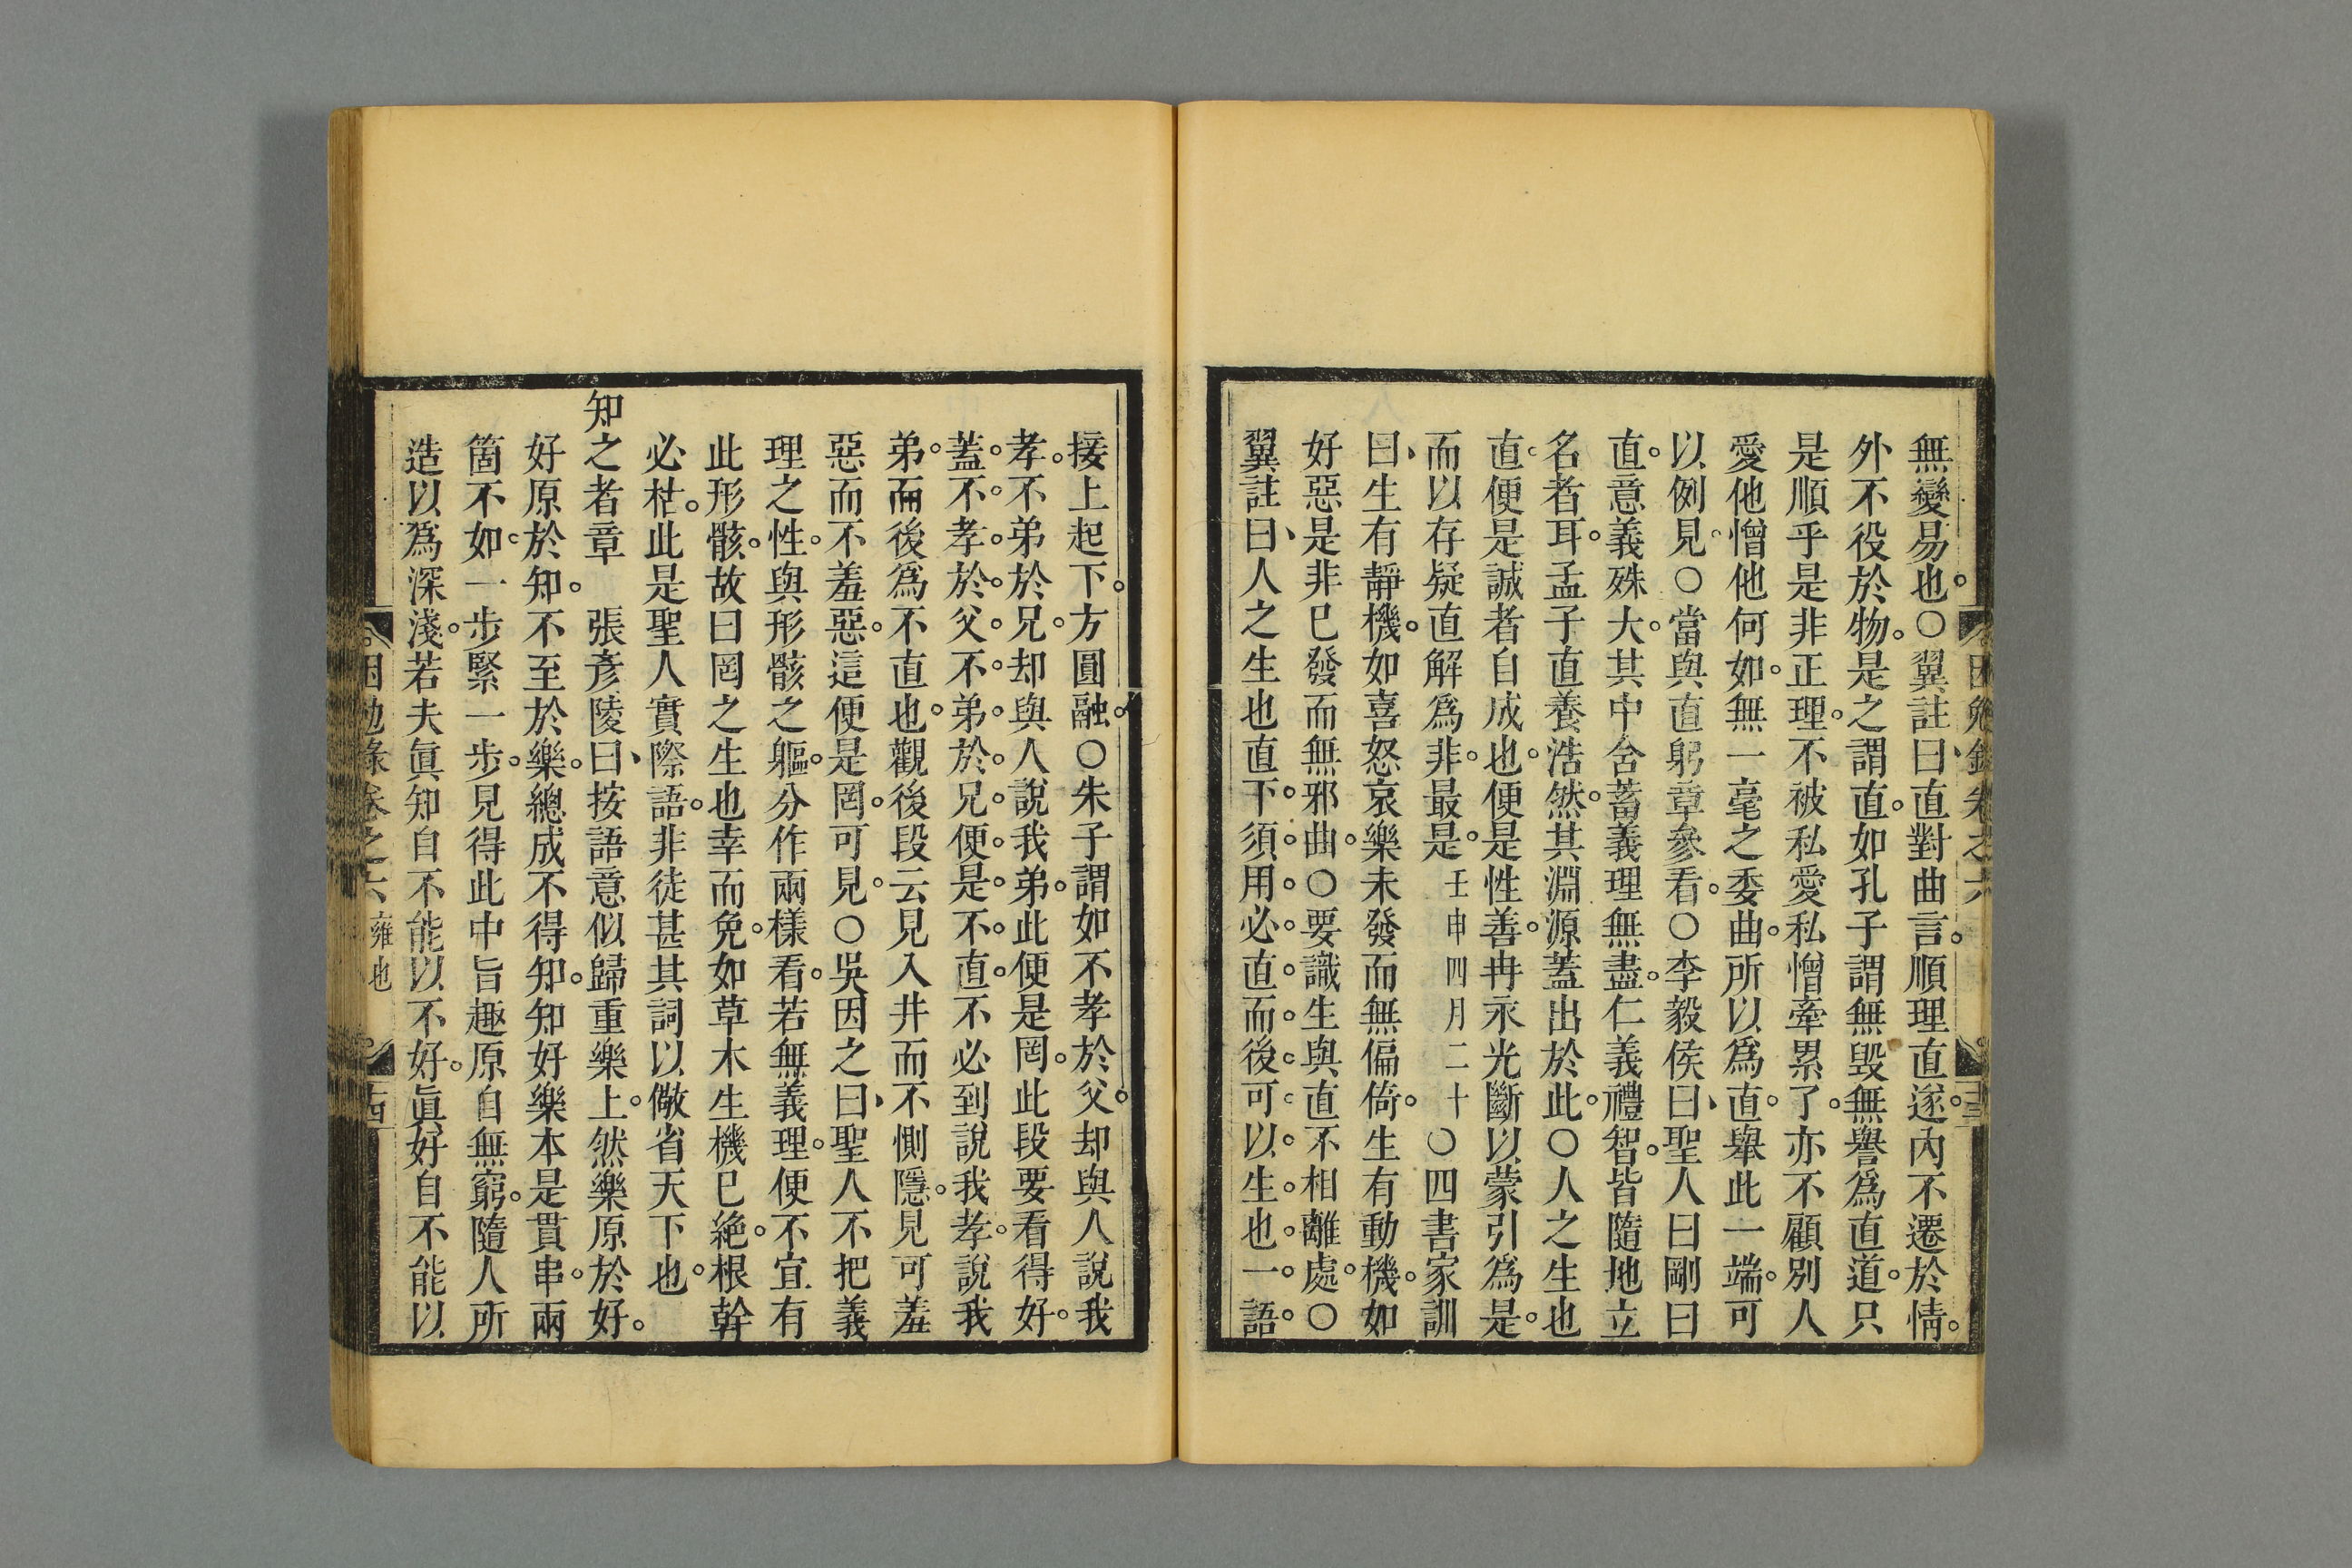 無變易也。○翼註曰、直對曲言。順理直遂。內不遷於情。
外不役於物。是之謂直。如孔子謂無毀無譽爲直道。只
是順乎是非正理。不被私愛私憎牽累了。亦不顧別人
愛他憎他何如。無一毫之委曲。所以爲直。舉此一端。可
以例見。○當與直躬章參看。○李毅侯曰、聖人曰剛曰
直。意義殊大。其中含蓄義理無盡。仁義禮智。皆隨地立
名者耳。孟子直養浩然。其淵源蓋出於此。○人之生也
直。便是誠者自成也。便是性善。冉永光斷以蒙引爲是。
而以存疑直解爲非。最是。壬申四月二十○四書家訓
曰、生有靜機。如喜怒哀樂未發而無偏倚。生有動機。如
好惡是非已發而無邪曲。○要識生與直不相離處。○
翼註曰、人之生也直下。須用必直而後可以生也一語。
困勉錄卷之六
十三
接上起下。方圓融。○朱子謂如不孝於父。却與人說我
孝。不弟於兄。却與人說我弟。此便是罔。此段要看得好。
蓋不孝於父。不弟於兄。便是不直。不必到說我孝。說我
弟。而後爲不直也。觀後段云見入井而不惻隱。見可羞
惡而不羞惡。這便是罔。可見。○吳因之曰、聖人不把義
理之性。與形骸之軀。分作兩樣看。若無義理。便不宜有
此形骸。故曰罔之生也幸而免。如草木生機已絕。根幹
必枯。此是聖人實際語。非徒甚其詞以儆省天下也。
知之者章 張彥陵曰、按語意似歸重樂上。然樂原於好。
好原於知。不至於樂。總成不得知。知好樂本是貫串。兩
箇不如。一步緊一步。見得此中旨趣原自無窮。隨人所
造以爲深淺。若夫眞知自不能以不好。眞好自不能以
困勉錄卷之六 雍也
十四